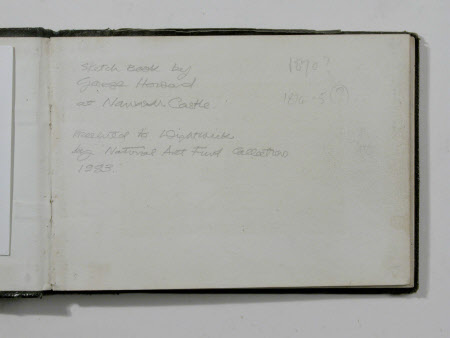 Sketch book by
George Howard
at Naworth Castle
1870?
1874-5 ?
to Wightwick
by National Art Fund Collection
1983.